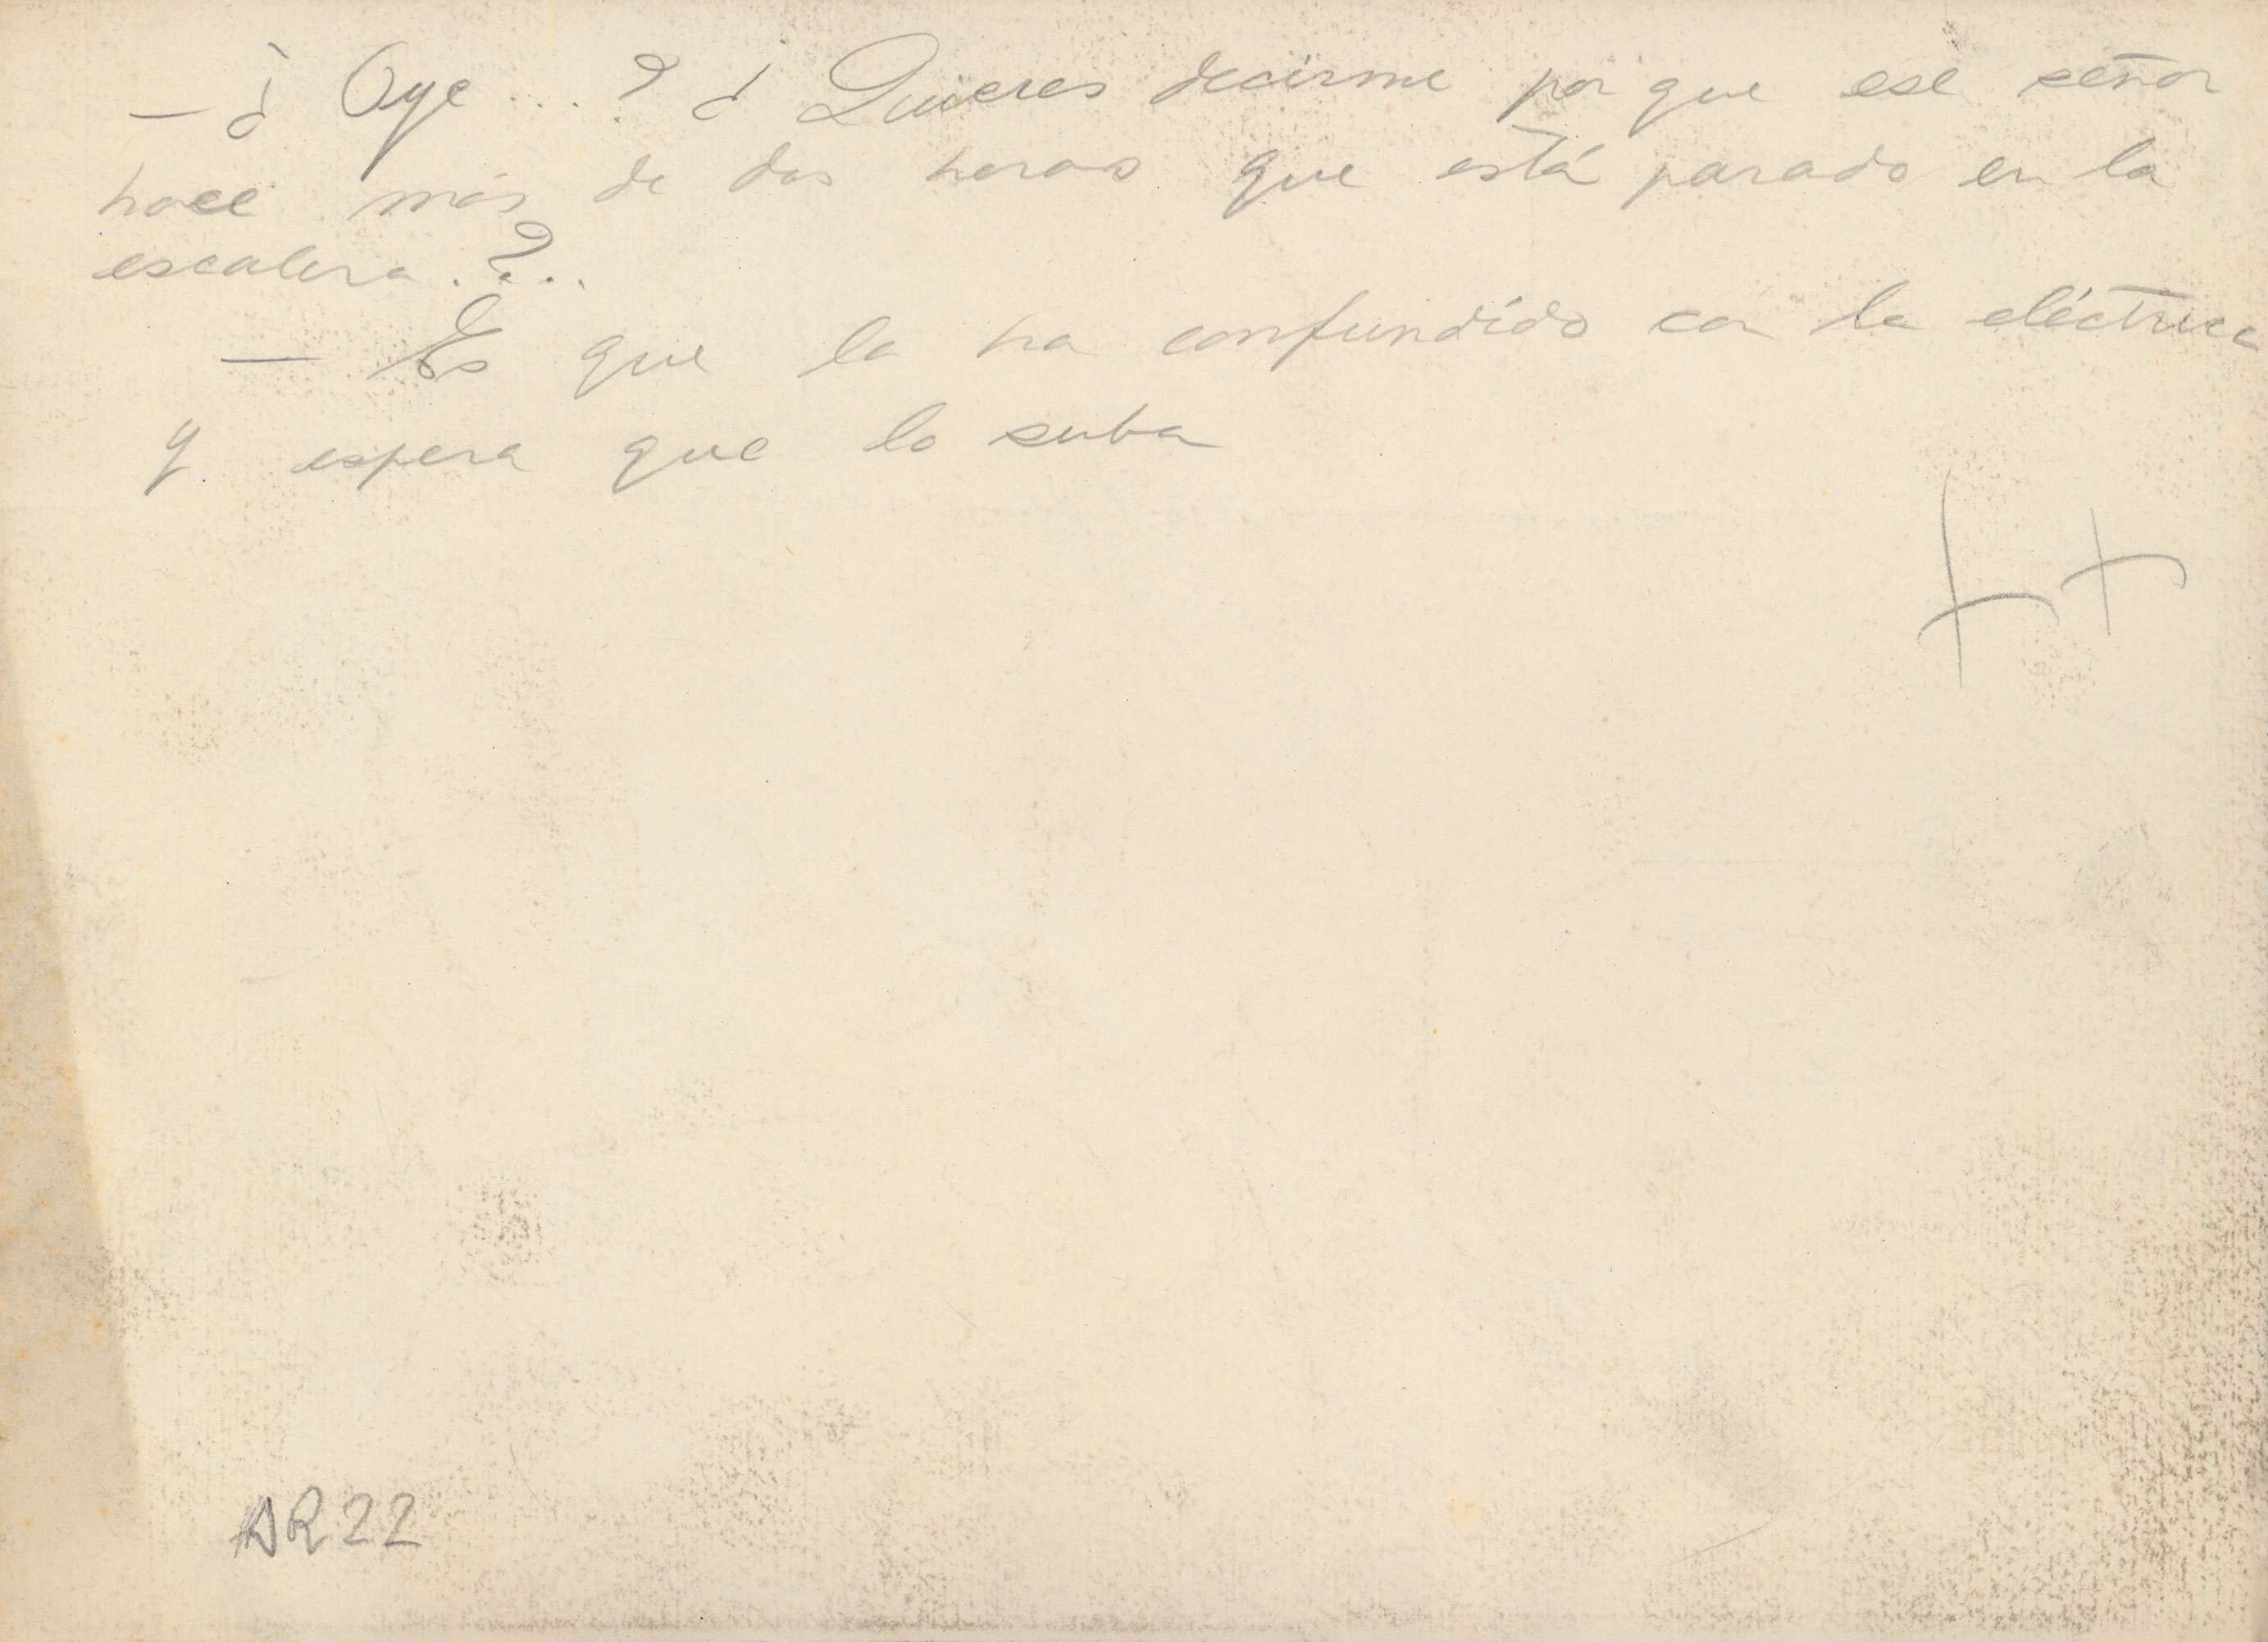 — ¿ Oye ...? ¿ Quieres decirme por que ese señor
hace más de dos horas que está parado en la
escalera.?..
— Es que la ha confundido con la eléctrica
y espera que lo suba
++
AR22